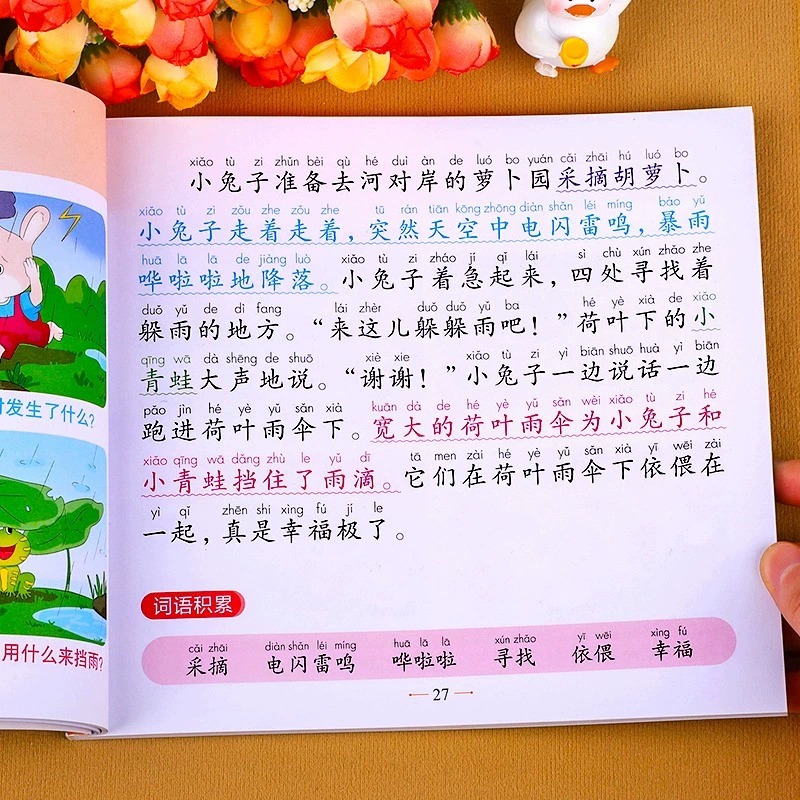 xiǎo tù zi zhǔn bèi qù hé duì àn de luó bo yuán cǎi zhāi hú luó bo
小兔子准备去河对岸的萝卜园采摘胡萝卜。
xiǎo tù zi zǒu zhe zǒu zhe tū rán tiān kōng zhōng diàn shǎn léi míng bào yǔ
小兔子走着走着，突然天空中电闪雷鸣，暴雨
huā lā lā de jiàng luò xiǎo tù zi zháo jí qǐ lái sì chù xún zhǎo zhe
哗啦啦地降落。小兔子着急起来，四处寻找着
duǒ yǔ de dì fang lái zhèr duǒ duǒ yǔ ba hé yè xià de xiǎo
躲雨的地方。“来这儿躲躲雨吧！”荷叶下的小
qīng wā dà shēng de shuō xiè xie xiǎo tù zi yì biān shuō huà yì biān
青蛙大声地说。“谢谢！”小兔子一边说话一边
pǎo jìn hé yè yǔ sǎn xià kuān dà de hé yè yǔ sǎn wèi xiǎo tù zi hé
跑进荷叶雨伞下。宽大的荷叶雨伞为小兔子和
xiǎo qīng wā dǎng zhù le yǔ dī tā men zài hé yè yǔ sǎn xià yī wēi zài
小青蛙挡住了雨滴。它们在荷叶雨伞下依偎在
yì qǐ zhēn shì xìng fú jí le
一起，真是幸福极了。
词语积累
cǎi zhāi diàn shǎn léi míng huā lā lā xún zhǎo yī wēi xìng fú
采摘 电闪雷鸣 哗啦啦 寻找 依偎 幸福
27
发生了什么？
用什么来挡雨？